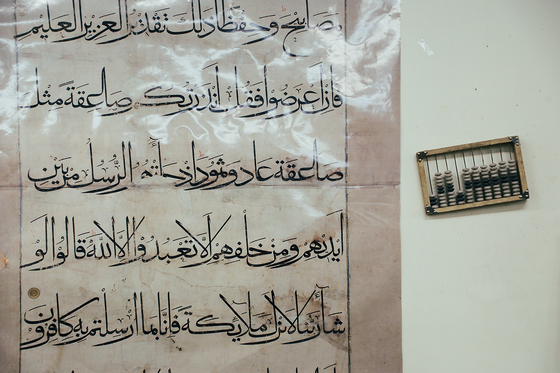 مصابيح وحفظا ذلك تقدير العزيز العليم
فان اعرضوا فقل انذرتكم صاعقة مثل
صاعقة عاد وثمود اذ جاءتهم الرسل من بين
ايديهم ومن خلفهم الا تعبدوا الا الله قالوا لو
شاء ربنا لانزل ملايكة فانا بما ارسلتم به كافرون